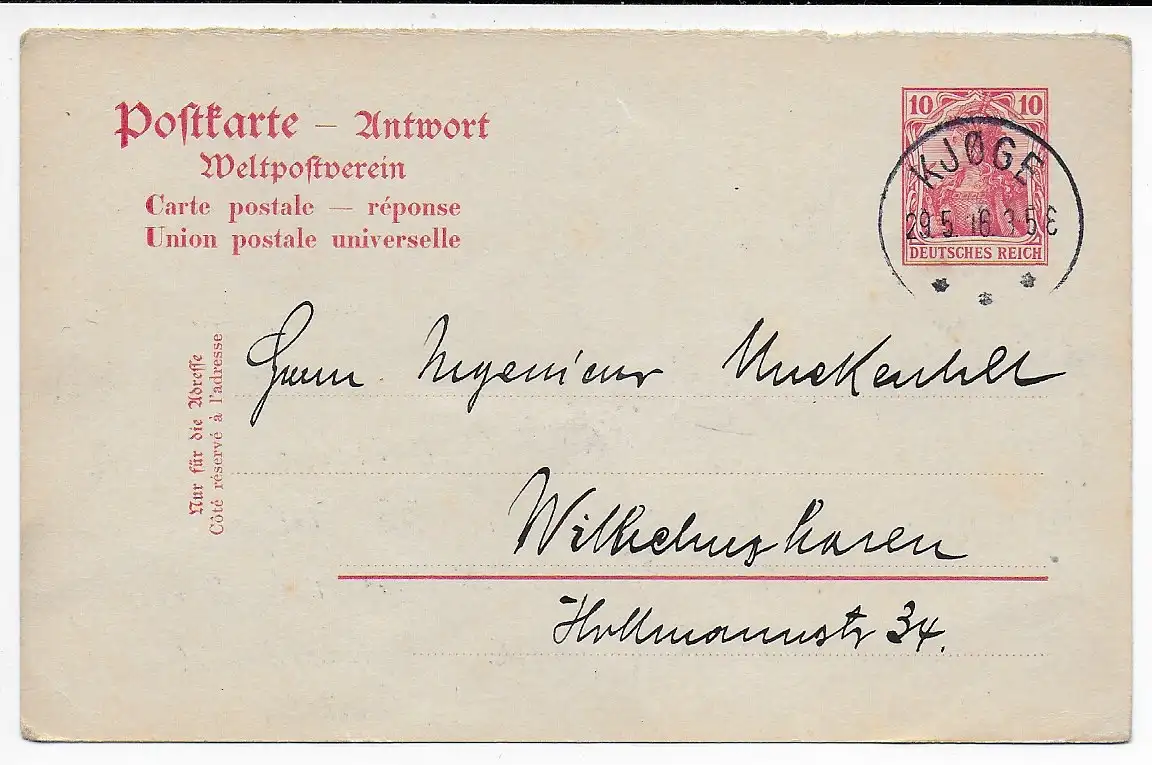 Postkarte – Antwort
Weltpostverein
Carte postale — réponse
Union postale universelle
10 10
DEUTSCHES REICH
KJØGE
29.5.16. 3.5 E
Nur für die Adresse
Côté réservé à l'adresse
Herrn Ingenieur
Wilhelmshaven
Hollmannstr 34.